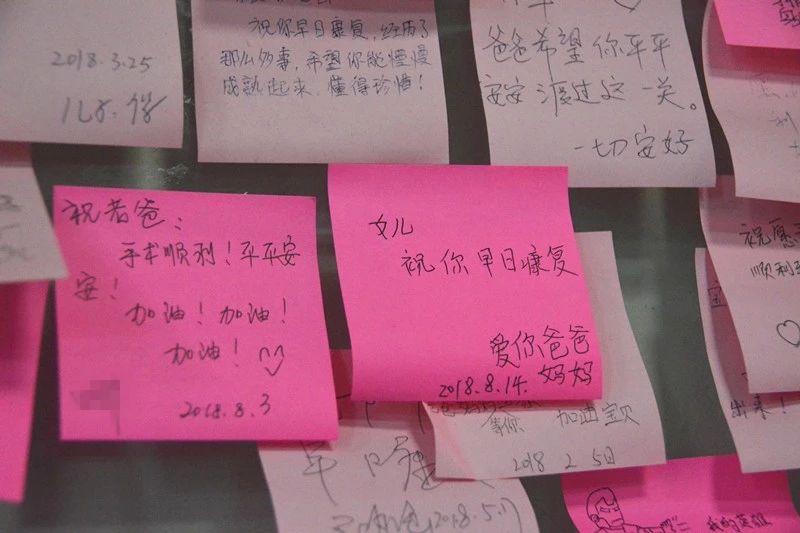 2018.3.25
祝你早日康复,经历了
那么多事,希望你能慢慢
成熟起来,懂得珍惜!
爸爸希望你平平
安安渡过这一关。
一切安好
祝老爸:
手术顺利!平平安
安!
加油!加油!
加油!
2018.8.3
女儿
祝你早日康复
爱你爸爸
妈妈
2018.8.14.
等你 加油宝贝
2018 2 5日
早日康
2018.5.1
祝愿
顺利
出来!
我的英雄